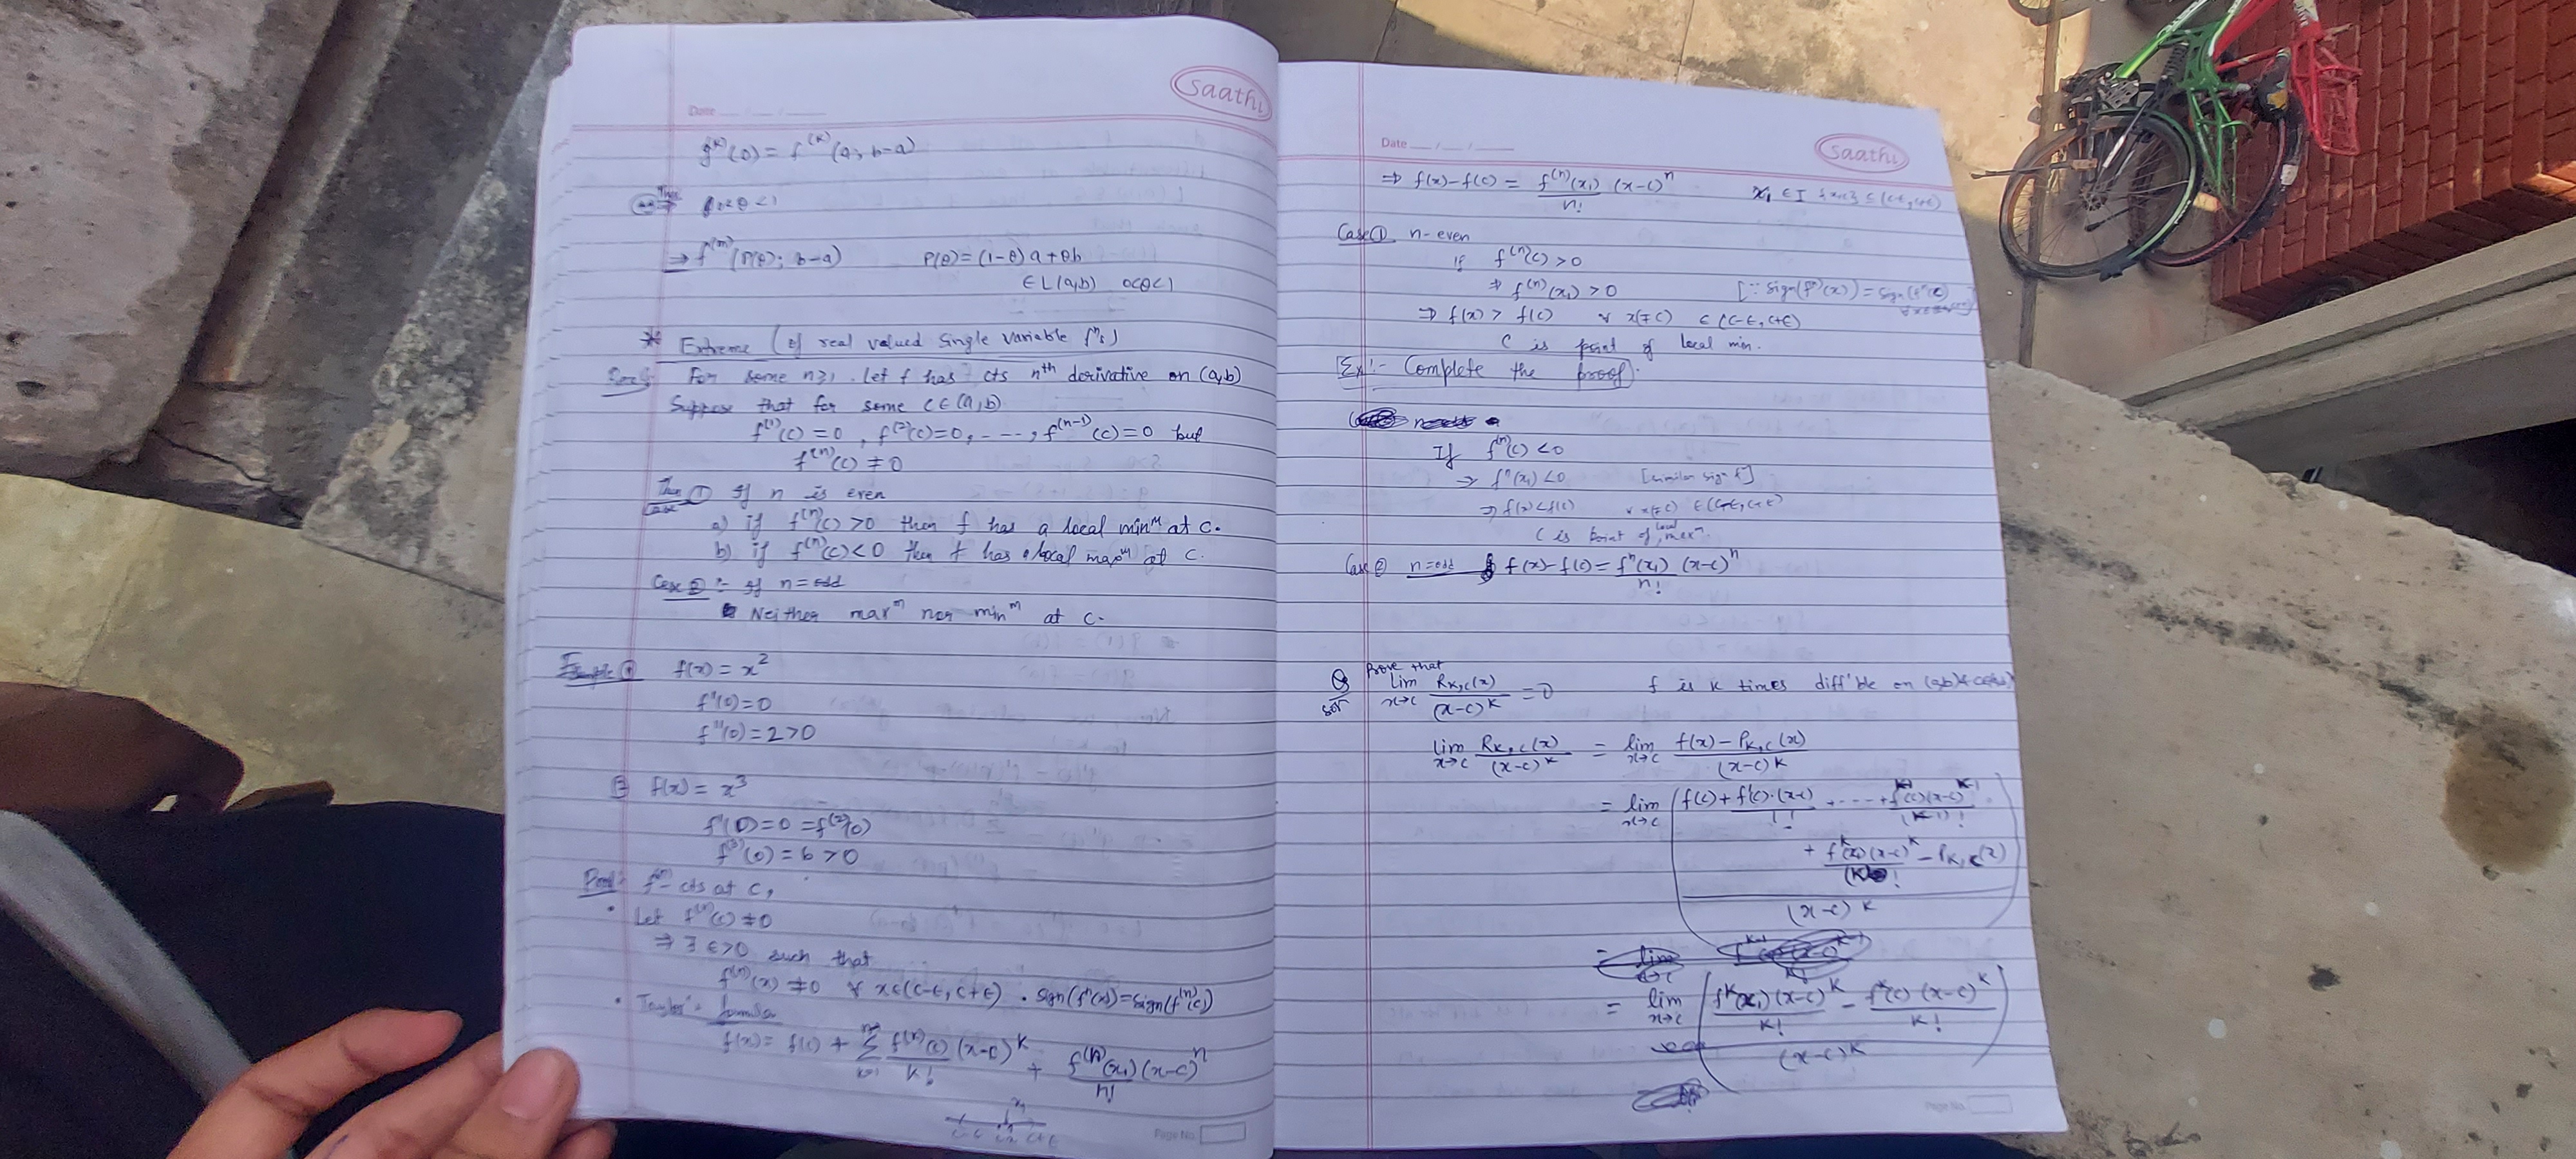 Saathi
Date
g^(k)(0) = f^(k)(a; b-a)
0<θ<1
⇒ f^(m)(P(θ); b-a) P(θ) = (1-θ)a + θb
∈ L(a,b) 0<θ<1
* Extreme (of real valued single variable fⁿs)
For some n≥1. Let f has cts nth derivative on (a,b)
Suppose that for some c∈(a,b)
f^(1)(c) = 0, f^(2)(c)=0, ----, f^(n-1)(c)=0 but
f^(n)(c) ≠ 0
Then
Case ① If n is even
a) if f^(n)(c) >0 then f has a local minᵐ at c.
b) if f^(n)(c) <0 then f has local maxᵐ at c.
Case ② :- If n=odd
Neither maxᵐ nor minᵐ at c.
Example ① f(x) = x²
f'(0)=0
f''(0)=2>0
② f(x) = x³
f'(0)=0 =f^(2)(0)
f^(3)(0) = 6 >0
Proof:- f^(n) cts at c,
• Let f^(n)(c) ≠0
⇒ ∃ ε>0 such that
f^(n)(x) ≠0 ∀ x∈(c-ε, c+ε) . sign(fⁿ(x))=sign(f^(n)(c))
• Taylor's formula
f(x) = f(c) + Σ f^(k)(c)/k! (x-c)^k + f^(n)(x₁)/n! (x-c)^n
x₁
c-ε c x c+ε
Page No.
Date
Saathi
⇒ f(x)-f(c) = f^(n)(x₁)/n! (x-c)^n x₁ ∈ I ⊆ (c-ε, c+ε)
Case ① n-even
if f^(n)(c) >0
⇒ f^(n)(x₁) >0
⇒ f(x) > f(c) ∀ x(≠c) ∈ (c-ε, c+ε)
c is point of local min.
Ex:- Complete the proof.
If f^(n)(c) <0
⇒ fⁿ(x₁) <0 [similar sign f]
⇒ f(x)<f(c) ∀ x(≠c) ∈ (c-ε, c+ε)
c is point of local maxᵐ.
Case ② n=odd f(x)-f(c) = fⁿ(x₁)/n! (x-c)^n
Q Prove that
lim x→c R_{k,c}(x)/(x-c)^k = 0 f is k times diff'ble on (a,b)
Solⁿ
lim x→c R_{k,c}(x)/(x-c)^k = lim x→c f(x) - P_{k,c}(x)/(x-c)^k
= lim x→c ( f(c) + f'(c).(x-c)/1! + ---- + f^{k-1}(c)(x-c)^{k-1}/(k-1)!
+ f^k(x₁)(x-c)^k/k! - P_{k,c}(x) ) / (x-c)^k
= lim x→c ( f^k(x₁)(x-c)^k/k! - f^k(c)(x-c)^k/k! ) / (x-c)^k
Page No.